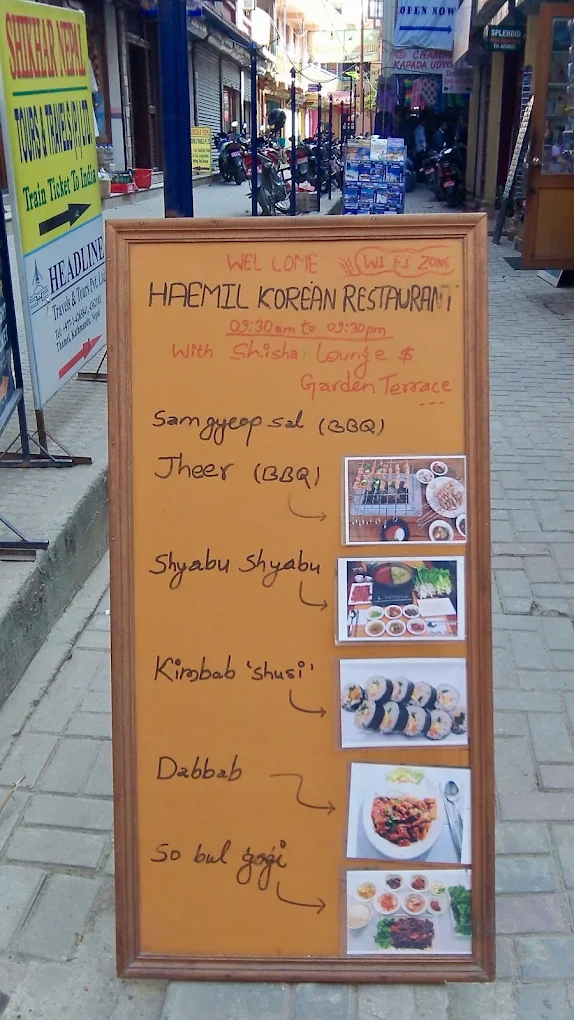 SHIKHAR NEPAL
TOURS & TRAVELS (P.) LTD
Train Ticket To India
HEADLINE
Travels & Tours Pvt. Ltd.
Thamel, Kathmandu, Nepal
OPEN NOW
SPLENDID
KAPADA UDYOG
WEL LOME WI FI ZONE
HAEMIL KOREAN RESTAURANT
09:30am to 09:30pm
With Shisha Lounge $
Garden Terrace
Samgyeop sal (BBQ)
Jheer (BBQ)
Shyabu Shyabu
Kimbab 'shusi'
Dabbab
So bul gogi